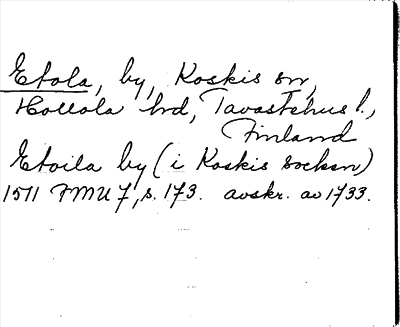 Etola, by, Koskis sn,
Hollola hrd, Tavastehus l.,
Finland
Etoila by (i Koskis socken)
1511 FMU 7, s. 173. avskr. av 1733.